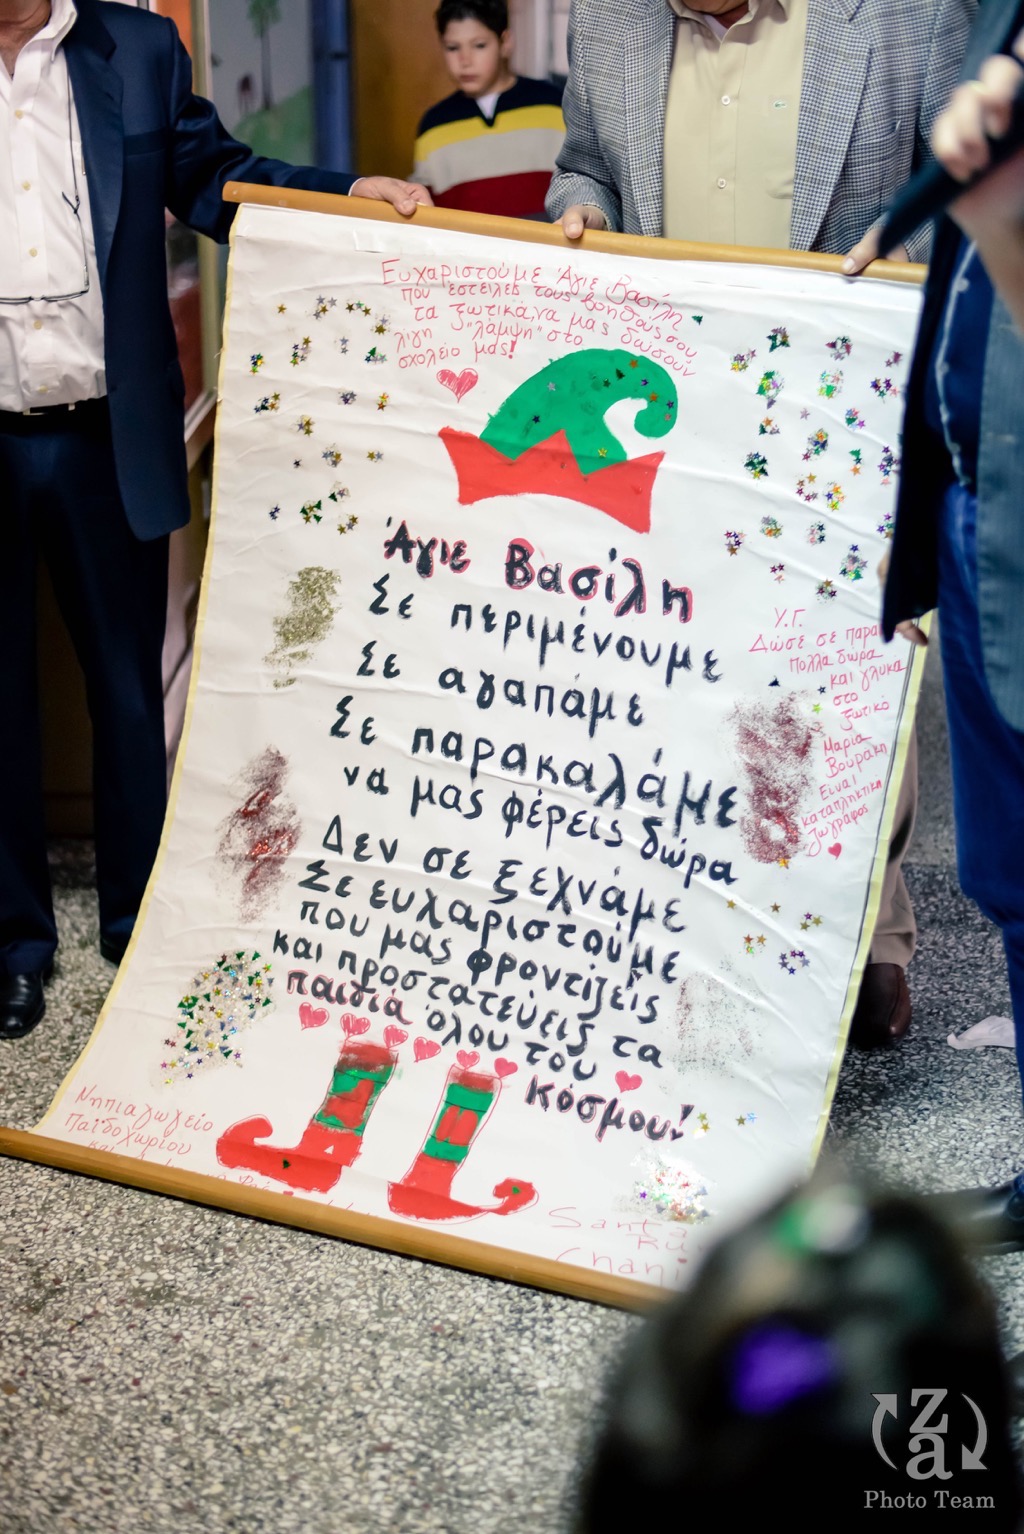 Ευχαριστούμε Άγιε Βασίλη
που έστειλες τους βοηθούς σου
τα ξωτικά, να μας δώσουν
λίγη "λάμψη" στο
σχολείο μας!
Άγιε Βασίλη
Σε περιμένουμε
Σε αγαπάμε
Σε παρακαλάμε
να μας φέρεις δώρα
Δεν σε ξεχνάμε
Σε ευχαριστούμε
που μας φροντίζεις
και προστατεύεις τα
παιδιά όλου του
κόσμου!
Υ.Γ.
Δώσε σε παρα
πολλα δωρα
και γλυκα
στο
ξωτικό
Μαρία
Βουράκη
Είναι
καταπληκτικη
ζωγράφος
Νηπιαγωγείο
Παϊδοχωρίου
και
Santa
Chani
za
Photo Team